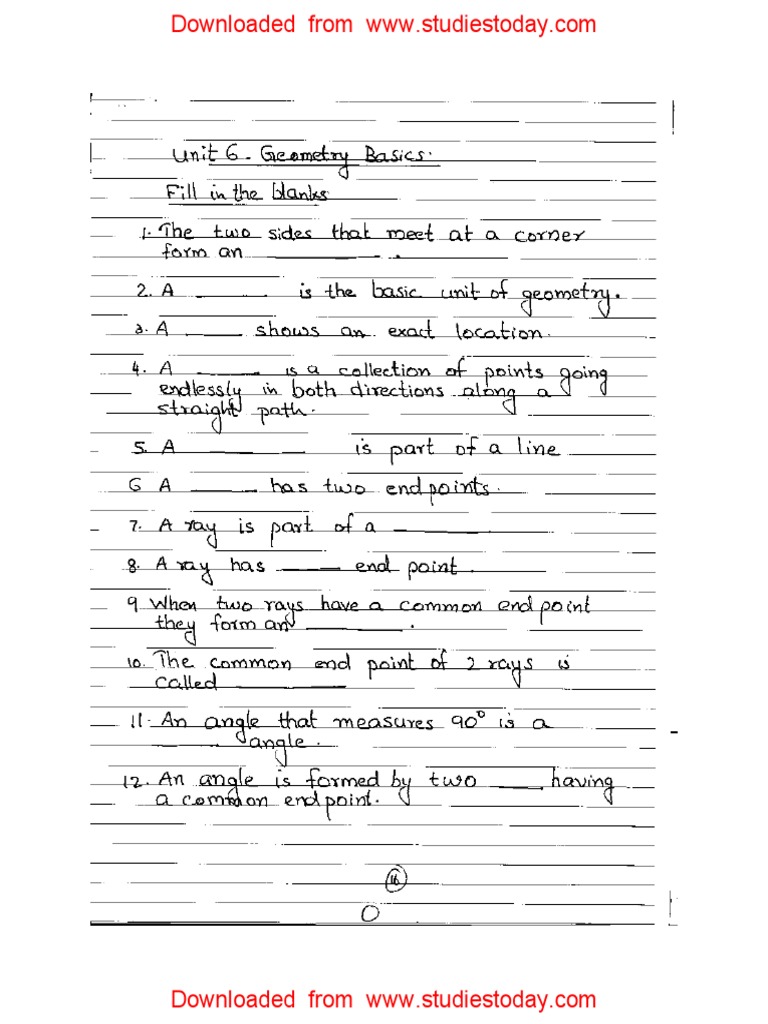 Downloaded from www.studiestoday.com
Unit 6 - Geometry Basics.
Fill in the blanks
1. The two sides that meet at a corner
form an ________ .
2. A ______ is the basic unit of geometry.
3. A ____ shows an exact location.
4. A _____ is a collection of points going
endlessly in both directions along a
straight path.
5. A __________ is part of a line
6 A _____ has two endpoints.
7. A ray is part of a _________
8. A ray has ____ end point.
9 When two rays have a common endpoint
they form an ________ .
10. The common end point of 2 rays is
called ________
11. An angle that measures 90° is a
_______ angle.
12. An angle is formed by two ____ having
a common endpoint.
16
Downloaded from www.studiestoday.com